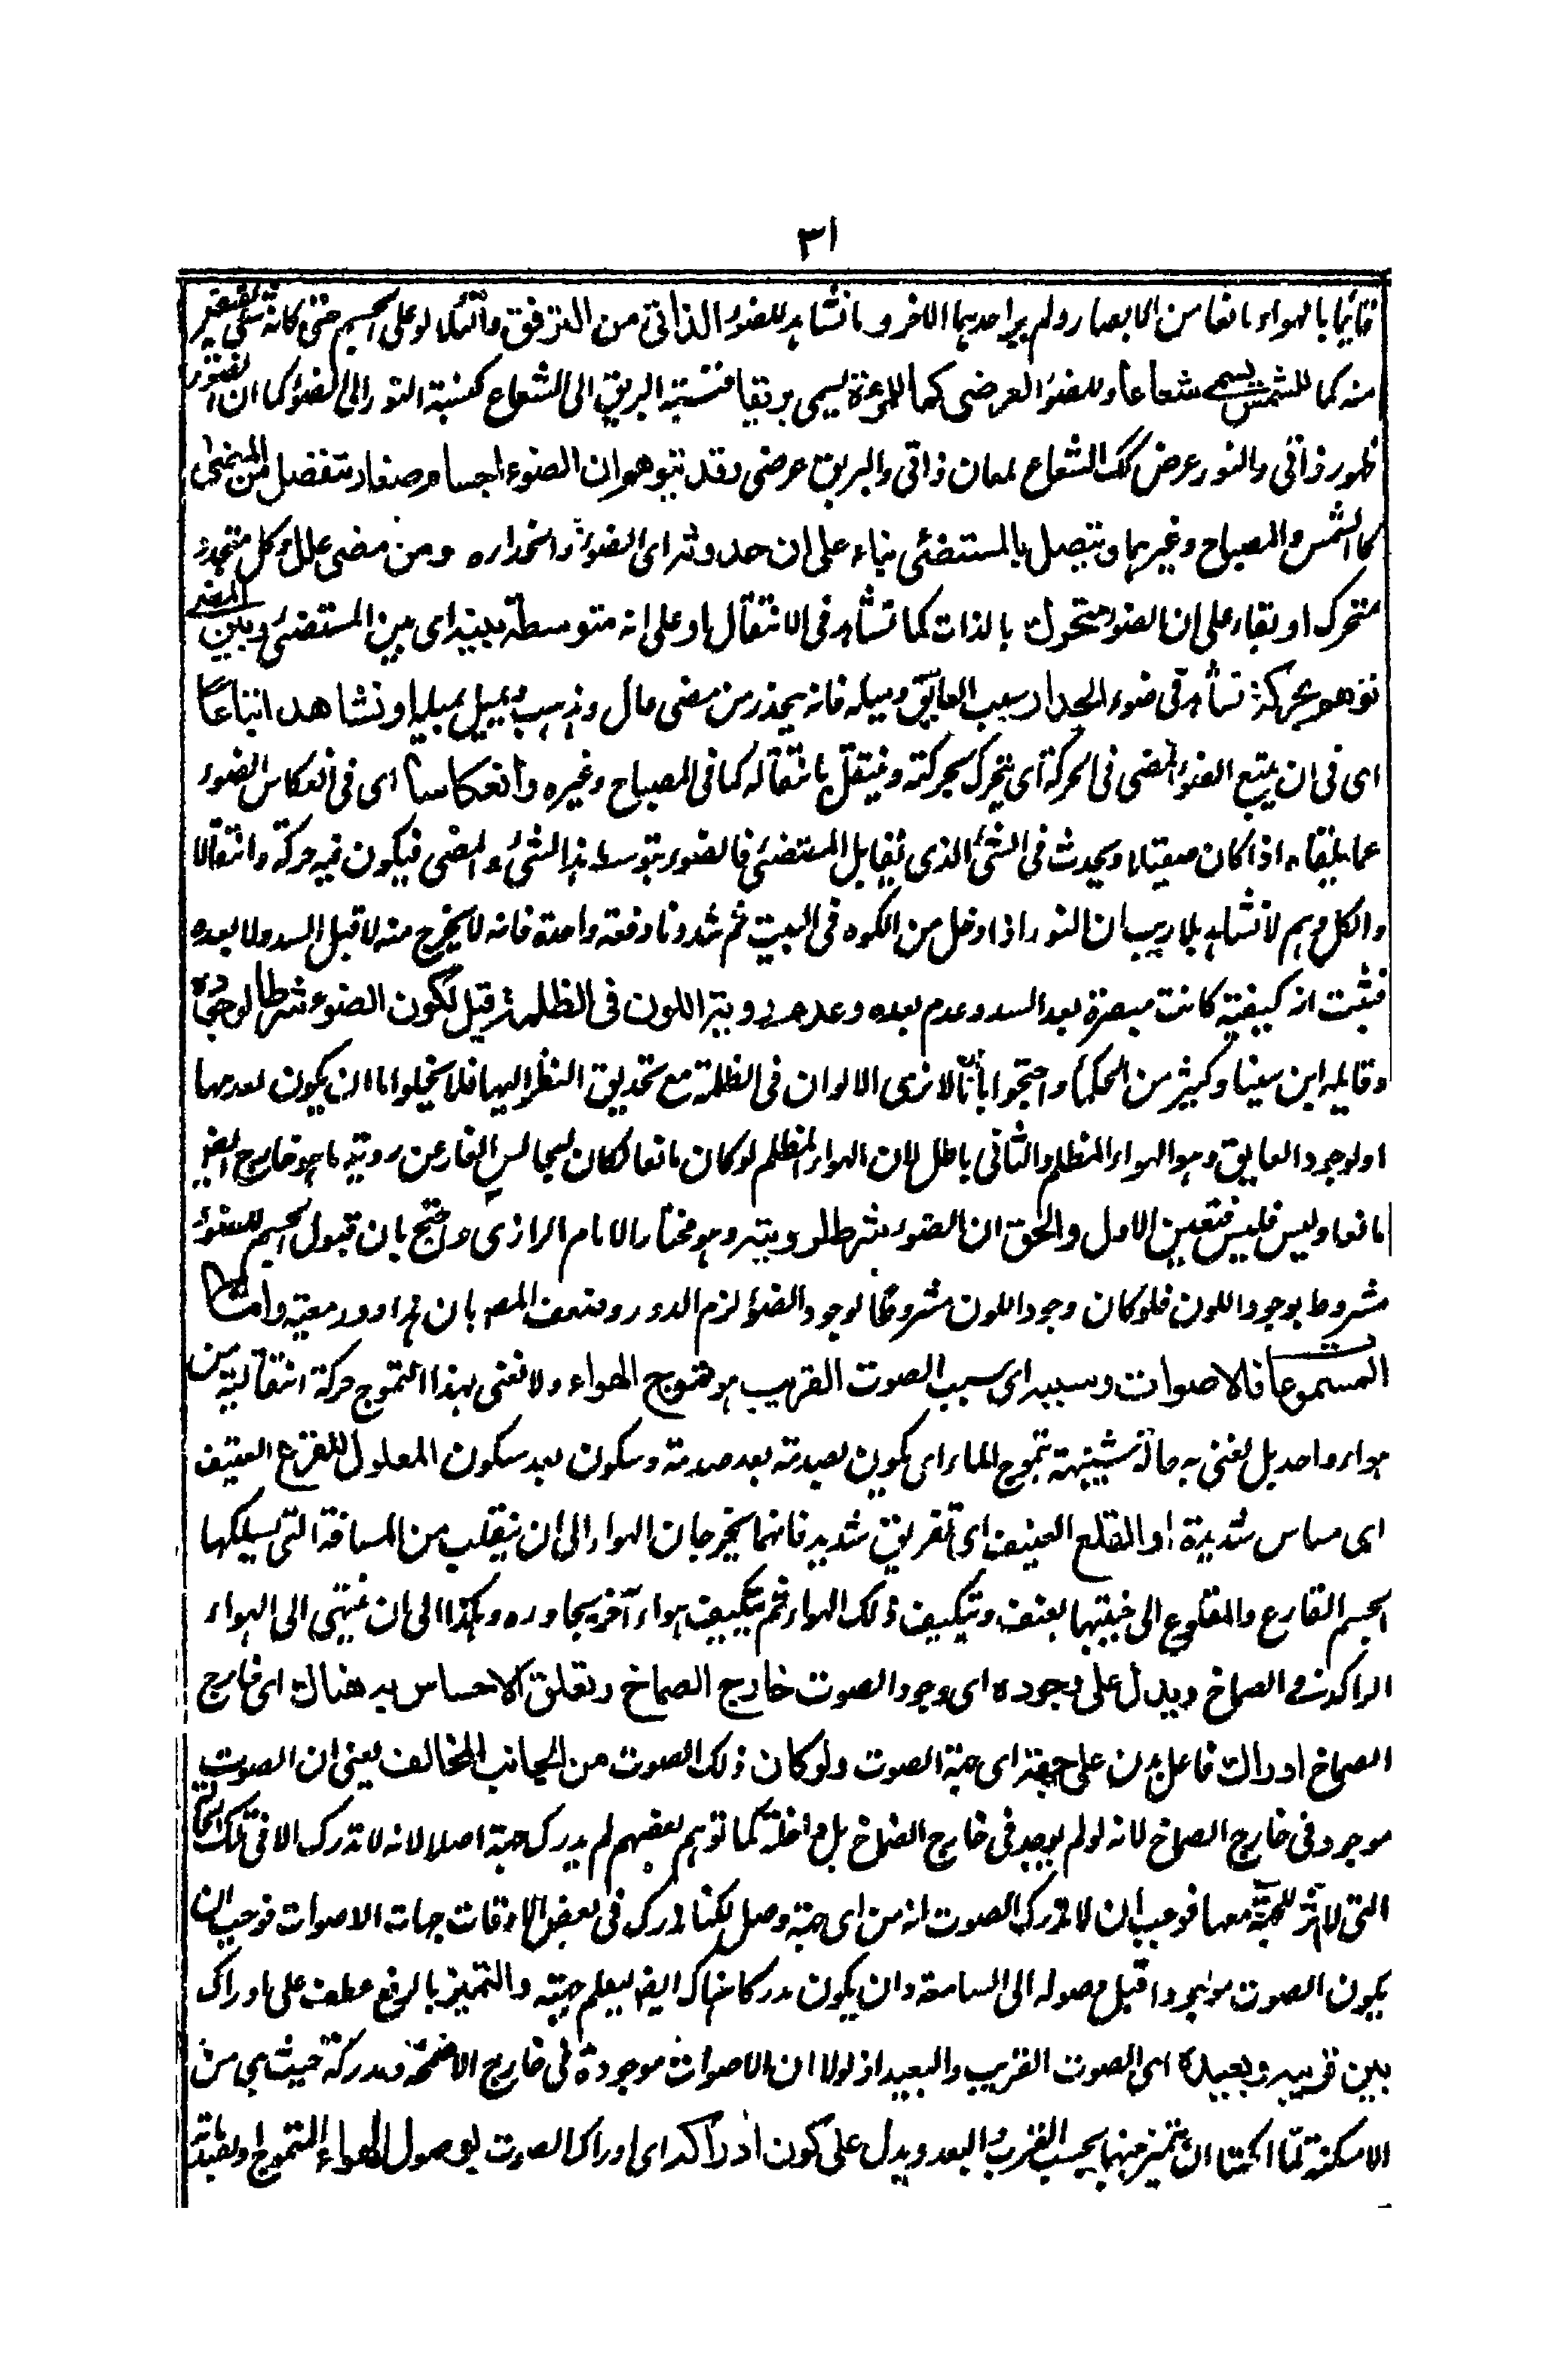 ٣١
قائما بالهواء مانعا من الابصار ولم ير احدهما الاخر وما نشاهد للضوء الذاتي من الترقرق والتلألؤ على الجسم حتى كانه شي يفيض
منه كما للشمس يسمى شعاعا وللضوء العرضي كما للمرءة يسمى بريقا فنسبة البريق الى الشعاع كنسبة النور الى الضوء كما ان الضوء
ظهور ذاتي والنور عرضي كك الشعاع لمعان ذاتي والبريق عرضي وقد يتوهم ان الضوء اجسام صغار تنفصل من المضئ
كالشمس والمصباح وغيرهما ويتصل بالمستضئ بناء على ان حدوثه اى الضوء وانحداره ومن مضى عال وكل منحدر
متحرك او بناء على ان الضوء متحرك بالذات كما تشاهد في الانتقال او على انه متوسطة بينه اى بين المستضئ وبين المضئ
توهم بحركة تشاهد في ضوء الجدار بسبب العايق وميله فانه ينحدر من مضى مال وذهب ويميل بميله او نشاهد اتباعا
اى في ان يتبع الضوء المضى في الحركة اى يتحرك بحركته وينتقل بانتقاله كما في المصباح وغيره وانعكاسا اى في انعكاس الضوء
عما يلقاه اذا كان صقيلا ويحدث في الشئ الذى يقابل المستضئ فالضوء بتوسط هذا الشئ والمضى فيكون فيه حركة وانتقالا
والكل وهم لانشاهد بلا ريب ان النور اذا دخل من الكوه في البيت ثم شددنا دفعة واحدة فانه لا يخرج منه لا قبل السد ولا بعده
فثبت انه كيفية كانت مبصرة بعد السد وعدم بعده وعدم روية اللون في الظلمة قيل لكون الضوء شرطا لوجوده
وقايله ابن سينا وكثير من الحكماء واحتجوا بانا لا نرى الالوان في الظلمة مع تحديق النظر اليها فلا يخلوا اما ان يكون لعدمها
او لوجود العايق وهو الهواء المظلم والثاني باطل لان الهواء المظلم لو كان مانعا لكان لجالس الغار عن روية ما هو خارج الغار
مانعا وليس فليس فتعين الاول والحق ان الضوء شرط للروية وهو مختار الامام الرازى واحتج بان قبول الجسم للضوء
مشروط بوجود اللون فلو كان وجود اللون مشروطا لوجود الضوء لزم الدور وضعف المصه بان هذا دور معية واما
المسموعا فالاصوات وسببه اى سبب الصوت القريب هو تموج الهواء ولا نعنى بهذا التموج حركة انتقالية من
هواء واحد بل نعنى به حالة شبيهة بتموج الماء اى يكون بصدمة بعد صدمة وسكون بعد سكون المعلول للقرع العنيف
اى مساس شديدة او القلع العنيف اى تفريق شديد فانهما يخرجان الهواء الى ان ينقلب من المسافة التى يسلكها
الجسم القارع والمقلوع الى جنبتها بعنف ويتكيف ذلك الهواء ثم يتكيف هواء آخر يجاوره وهكذا الى ان ينتهى الى الهواء
الراكد فى الصماخ ويدل على وجوده اى وجود الصوت خارج الصماخ وتعلق الاحساس به هناك اى خارج
الصماخ ادراك فاعل يدل على جهته اى جهة الصوت ولو كان ذلك الصوت من الجانب المخالف يعنى ان الصوت
موجود في خارج الصماخ لانه لو لم يوجد في خارج الصماخ بل داخله كما توهم بعضهم لم يدرك جهة اصلا لانه لا تدرك الا في تلك الحالة
التى لا اثر للجهة معها فوجب ان لا تدرك الصوت انه من اى جهة وصل لكنا ندرك في بعض الاوقات جهات الاصوات فوجب ان
يكون الصوت موجودا قبل وصوله الى السامعة وان يكون مدركا هناك ايضا ليعلم جهته والتميز بالرفع عطف على ادراك
بين قريبه وبعيده اى الصوت القريب والبعيد اذ لولا ان الاصوات موجودة في خارج الاصمخة ومدركة حيث هي من
الامكنة لما امكننا ان نتميز بينهما بحسب القرب والبعد ويدل على كون ادراكه اى ادراك الصوت بوصول الهواء المتموج